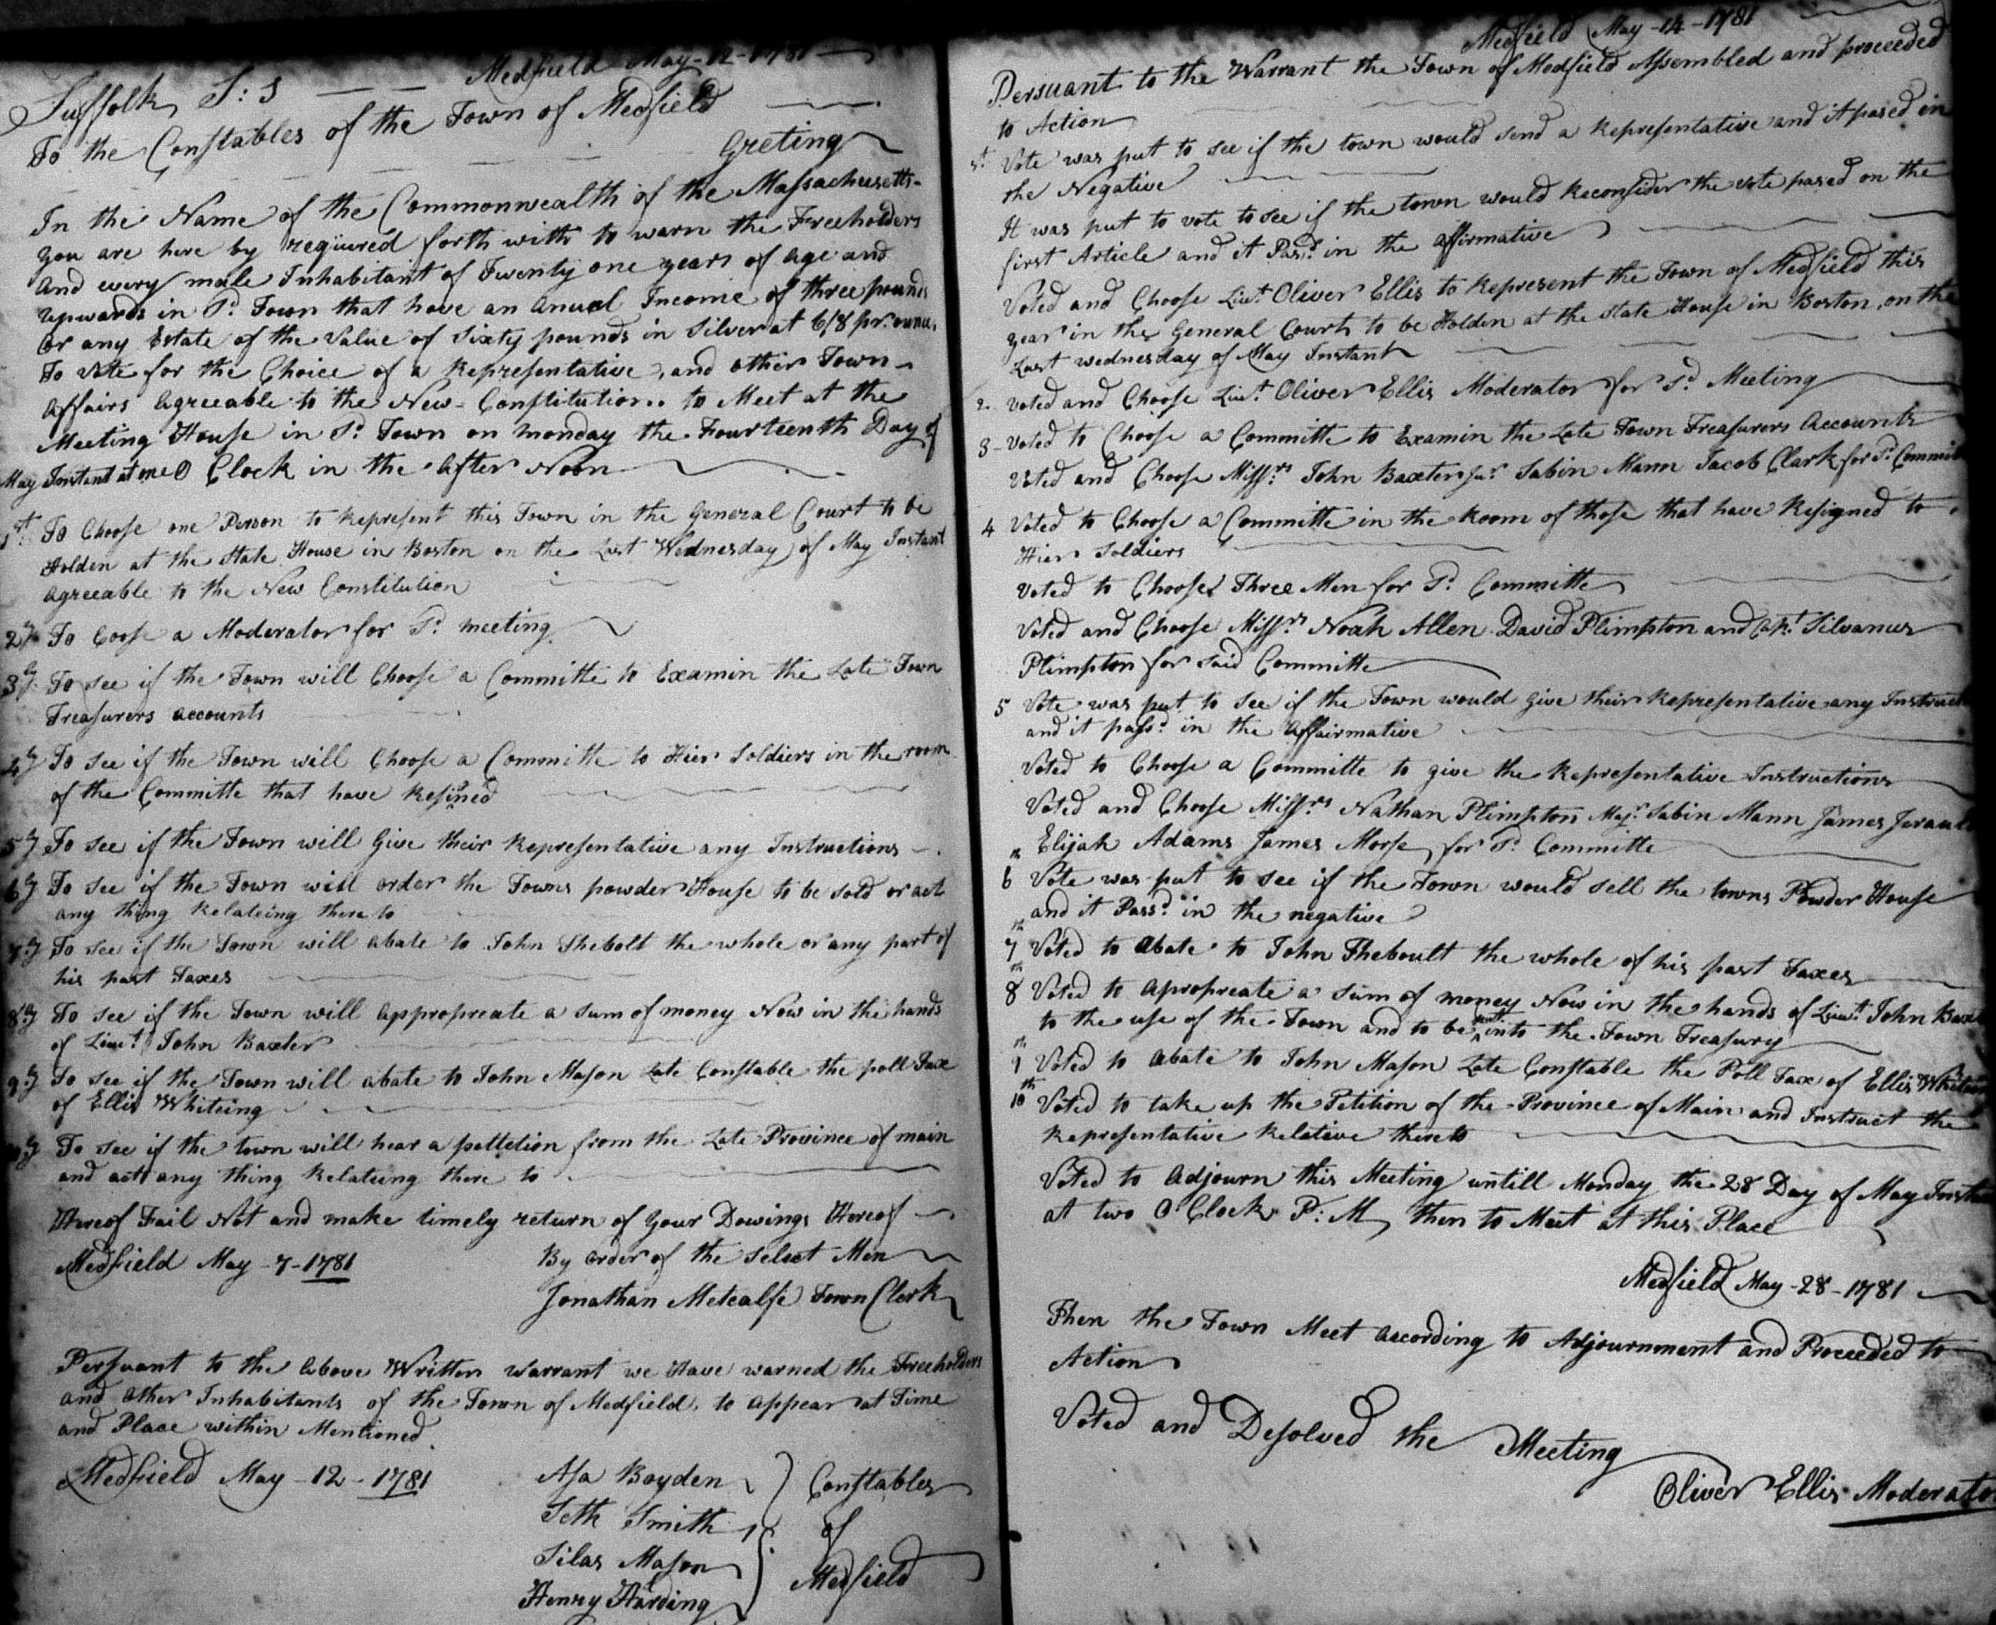 Medfield May-12-1781
Suffolk S:S
To the Constables of the Town of Medfield
Greting
In the Name of the Commonwealth of the Massachusetts
you are here by required forth with to warn the Freeholders
and every male Inhabitant of Twenty one years of age and
upwards in Sd. Town that have an Anual Income of three pounds
or any Estate of the Value of Sixty pounds in Silver at 6/8 pr. ounce
To Vote for the Choice of a Representative, and other Town
affairs agreeable to the New Constitution.. to Meet at the
Meeting House in Sd. Town on monday the Fourteenth Day of
May Instant at one O Clock in the After Noon
1st. To Choose one Person to Represent this Town in the General Court to be
Holden at the State House in Boston on the Last Wednesday of May Instant
agreeable to the New Constitution
2ly To Coose a Moderator for Sd. meeting
3ly. To see if the Town will Choose a Committe to Examin the Late Town
Treasurers accounts
4ly To see if the Town will Choose a Committe to Hier Soldiers in the room
of the Committe that have Resined
5ly To see if the Town will Give their Representative any Instructions
6ly To see if the Town will order the Towns powder House to be sold or act
any thing Relateing there to
7ly To see if the Town will abate to John Thebolt the whole or any part of
his past Taxes
8ly To see if the Town will appropreate a sum of money Now in the hands
of Lieut. John Baxter
9ly To see if the Town will abate to John Mason Late Constable the poll Tax
of Ellis Whiteing
To see if the town will hear a pettetion from the Late Province of main
and act any thing Relateing there to
Hereof Fail Not and make timely return of your Dowings Hereof
Medfield May-7-1781 By order of the Select Men
Jonathan Metcalfe Town Clerk
Persuant to the above Written Warrant we Have warned the Freeholders
and other Inhabitants of the Town of Medfield, to appear at Time
and Place within Mentioned
Medfield May-12-1781 Asa Boyden Constables
Seth Smith of
Silas Mason Medfield
Henry Harding
Medfield May-14-1781
Persuant to the Warrant the Town of Medfield Assembled and proceeded
to Action
st. Vote was put to see if the town would send a Representative and it pased in
the Negative
It was put to vote to see if the town would Reconsider the vote pased on the
first Article and it Pasd. in the affirmative
Voted and Choose Lieut. Oliver Ellis to Represent the Town of Medfield this
year in the General Court to be Holden at the State House in Boston, on the
Last wednesday of May Instant
2. Voted and Choose Lieut. Oliver Ellis Moderator for Sd. Meeting
3 Voted to Choose a Committe to Examin the Late Town Treasurers Accounts
Voted and Choose Missrs. John Baxter Jur. Sabin Mann Jacob Clark for Sd. Committe
4 Voted to Choose a Committe in the Room of those that have Resigned to
Hier Soldiers
Voted to Choose Three Men for Sd. Committe
Voted and Choose Missrs. Noah Allen David Plimpton and Capt. Silvanus
Plimpton for said Committe
5 Vote was put to see if the Town would give their Representative any Instruct
and it passd. in the affairmative
Voted to Choose a Committe to give the Representative Instructions
Voted and Choose Missrs Nathan Plimpton Majr. Sabin Mann James
Elijah Adams James Morse for Sd. Committe
6th Vote was put to see if the Town would sell the towns Powder House
and it Passd. in the negative
7th Voted to abate to John Theboult the whole of his past Taxes
8th Voted to apropreate a sum of money Now in the hands of Lieut. John Bax
to the use of the Town and to be put into the Town Treasury
9th Voted to abate to John Mason Late Constable the Poll Tax of Ellis Whiteing
10th Voted to take up the Petition of the Province of Main and Instruct the
Representative Relative thereto
Voted to adjourn this Meeting untill Monday the 28 Day of May Insta
at two O'Clock P:M, then to Meet at this Place
Medfield May-28-1781
Then the Town Meet according to Adjournment and Proceeded to
Action
Voted and Desolved the Meeting
Oliver Ellis Moderator